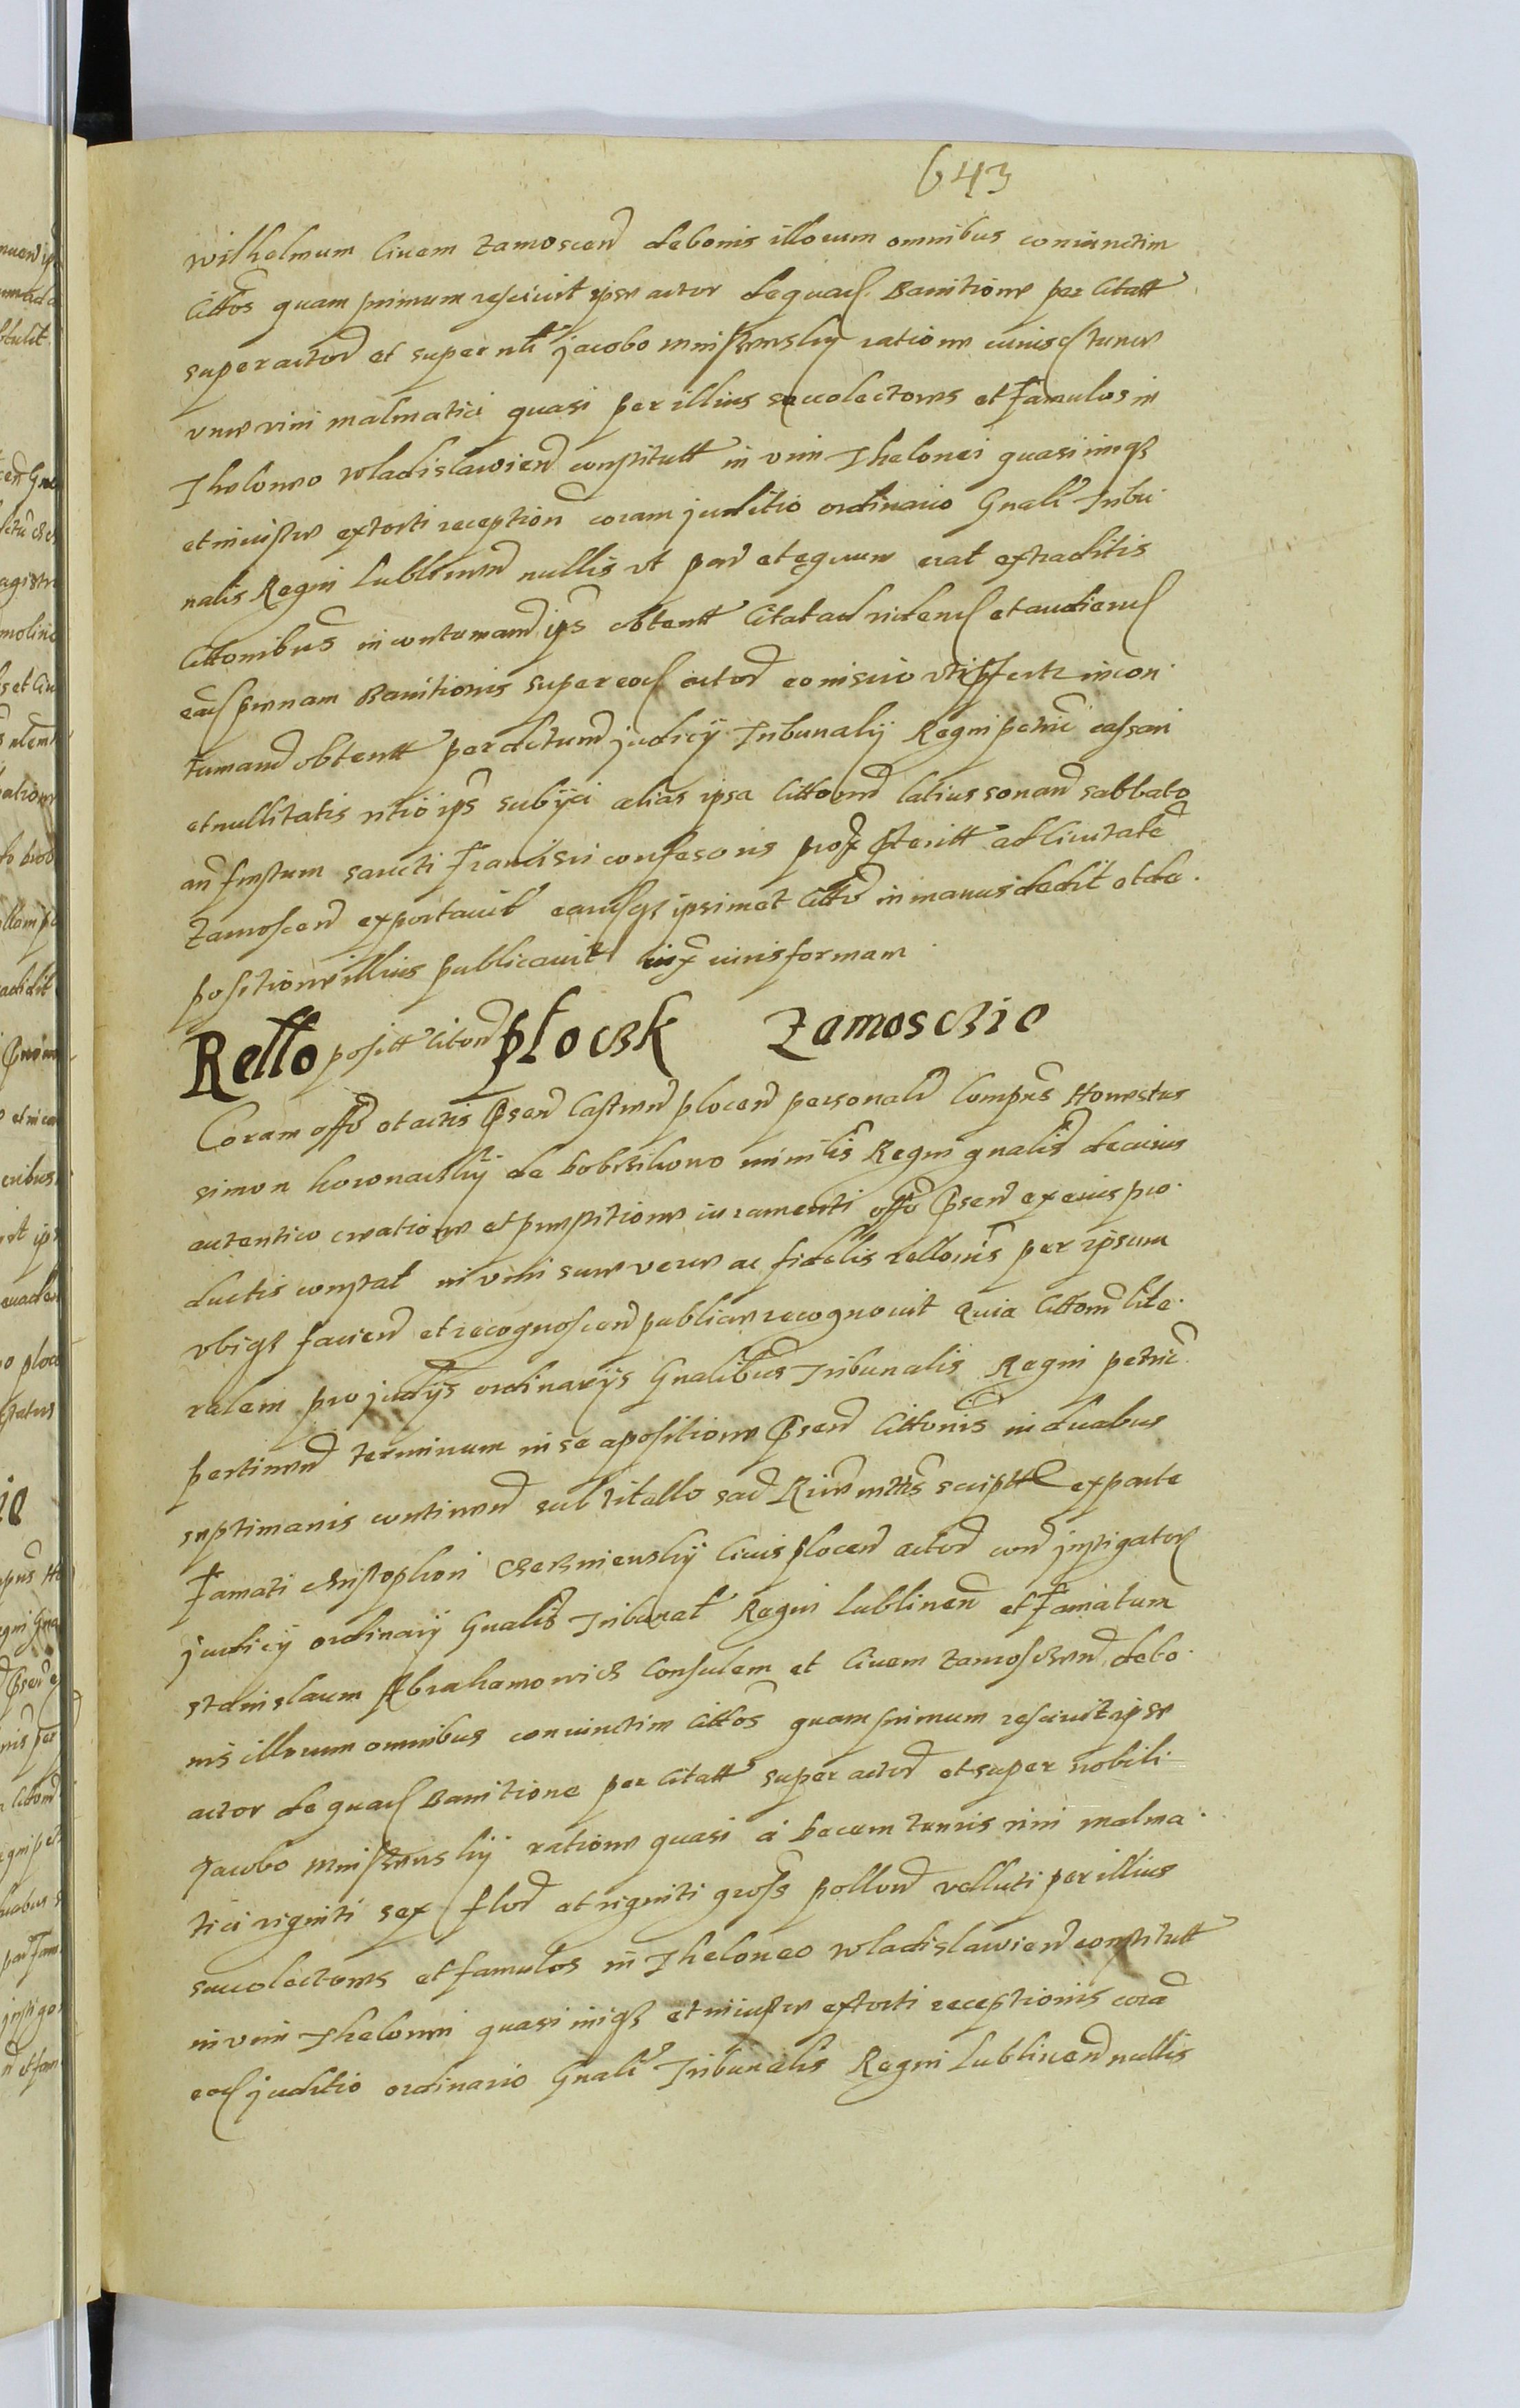 643
Wilhelmum Ciuem Zamoscen de bonis illorum omnibus coniunctim
Cittos quam primum resciuit ipse actor de quad Banitione per Citatt
super actore et super nli Jacobo ratione cuiusd tunne
vnie vini malmatici quasi per illius succolectores et famulos in
Theloneo Wladislawien constitutt in vim Thelonei quasi iniq
et iniuste extorti reception coram juditio ordinario Gnali Tribu
nalis Regni Lublinen nullis vt par et equum erat extraditis
Cittonibus in contumam ips obtentt Citat ad videnď et audienď
eanď penam Banitionis super eoď actore eo nisuio vti in con
tumam obtentt per dictum judicij Tribunalij Regni petric cassari
et nullitatis vitio ips subijci alias ipsa Cittone latius sonan sabbato
an festum sancti Francisci confesoris prox pterit ad Ciuitate
Zamoscen exportauit eamq ipsimet Citto in manus dedit et de
positione illius publicauit iux iuris formam
Rello positt Citon Płocsk Zamosczie
Coram offo et actis psen Castren plocen personalr Compns Honestus
Simon koronaczkij de bobrzikowo minilis Regni gnalis de cuius
autentico creatione et prestitione iuramenti offo psen ex eius pro
ductis constat in vim sue vere ac fidelis rellonis per ipsum
vbiq facien et recognoscen publice recognouit Quia Cittom lite
ralem pro judijs ordinarijs Gnalibus Tribunalis Regni petric
pertinen terminum in se apositione psen Cittonis in duabus
septimanis continen sub titullo sac Rie mttis scriptt ex parte
Famati christophori Ciuis plocen actore con jnstigatore
judicij ordinarij Gnalis Tribunal Regni Lublinen et Famatum
stanislaum Abrahamowicz Consulem et Ciuem Zamosczen de bo
nis illorum omnibus coniunctim Cittos quam primum resciuit ipse
actor de quad Banitione per Citatt super actore et super nobili
Jacobo ratione quasi a bacum tunnis vini malma
tici viginti sex flor et viginti gross pollon velluti per illius
succolectores et famulos in Theloneo Wladislawien constitutt
in vim Thelonei quasi iniq et iniuste extorti receptionis cora
eoď juditio ordinario Gnali Tribunalis Regni Lublinen nullis